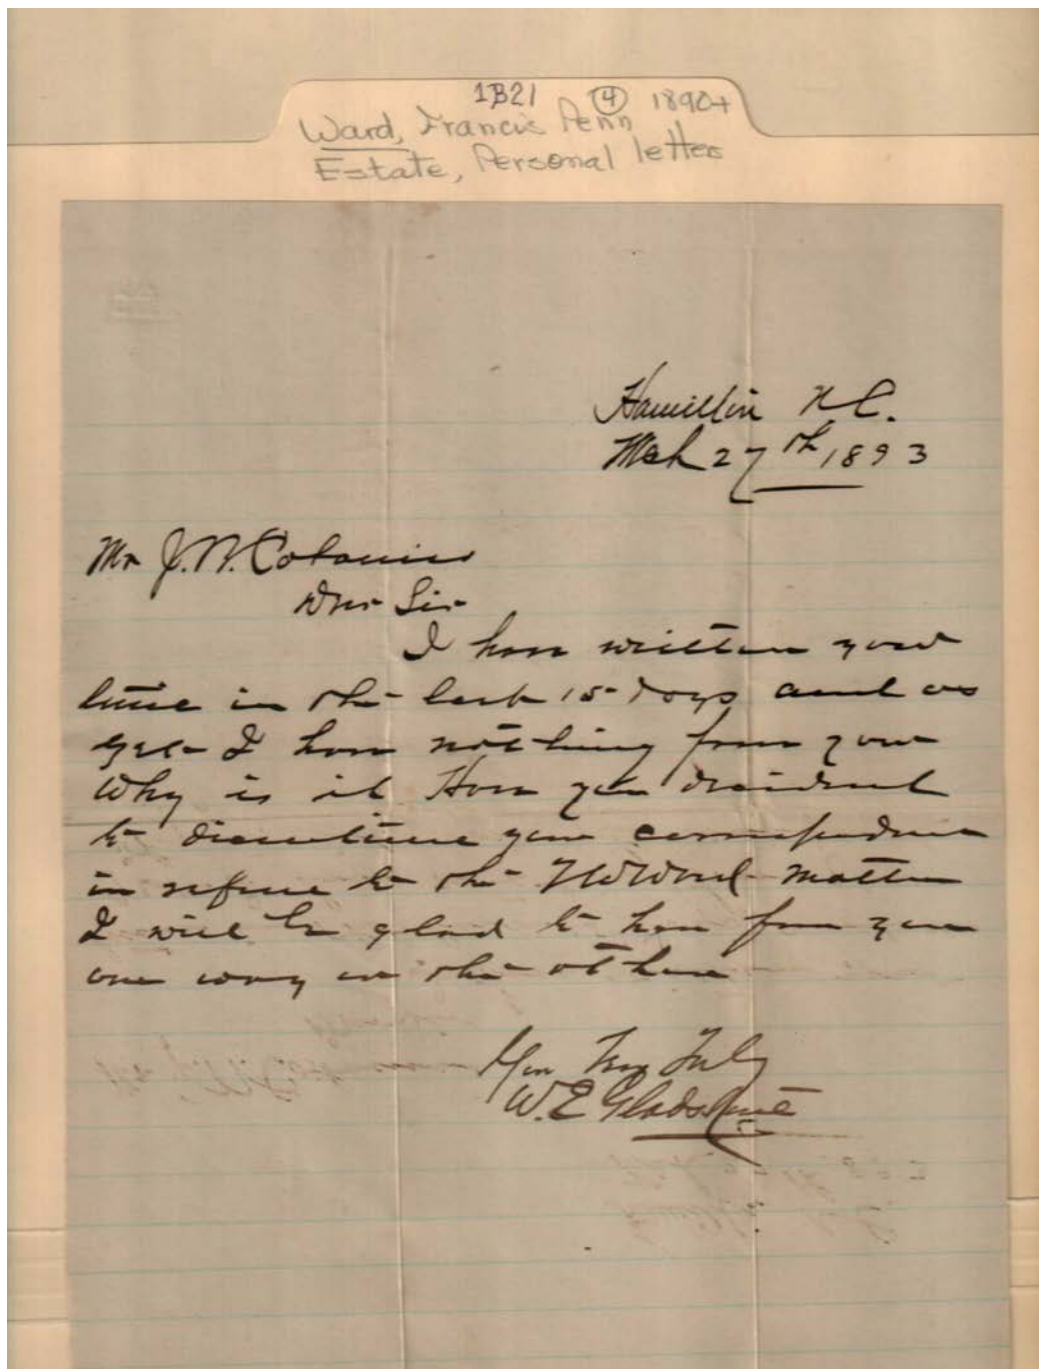 1B21 (4) 1890+
Ward, Francis Penn
Estate, Personal letters
Hamilton N.C.
Mch 27th, 1893
Mr J. N.
Dear Sir
I have written you
in the last 15 days and as
yet I have nothing from you
Why is it Have you decided
to discontinue your correspondence
in refrence to the Ward matter
I will be glad to hear from you
one way or the other
Your Very Truly
W.E Gladstone